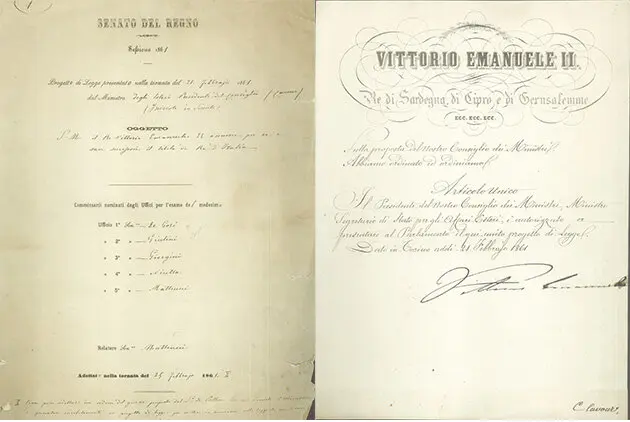 SENATO DEL REGNO
Sessione 1861
Progetto di Legge presentato nella tornata del 21 Febbraio 1861
dal Ministro degli Esteri Presidente del Consiglio (Cavour)
OGGETTO
il Re Vittorio Emanuele II assume per se e
suoi il titolo di Re d'Italia
Commissarii nominati dagli Uffizi per l'esame del medesimo
Uffizio 1° Sen.
» 2° — Giulini
» 3° — Giorgini
» 4° — Niutta
» 5° — Matteucci
Relatore Sen. Matteucci
Adottato nella tornata del 25 Febbraio 1861. X
VITTORIO EMANUELE II.
Re di Sardegna, di Cipro, e di Gerusalemme
ECC. ECC. ECC.
Sulla proposta del Nostro Consiglio dei Ministri;
Abbiamo ordinato ed ordiniamo:
Articolo Unico
Il Presidente del Nostro Consiglio dei Ministri, Ministro
Segretario di Stato per gli Affari Esteri, è autorizzato a
presentare al Parlamento il qui unito progetto di Legge.
Dato in Torino addì 21 Febbraio 1861
Vittorio Emanuele
C. Cavour